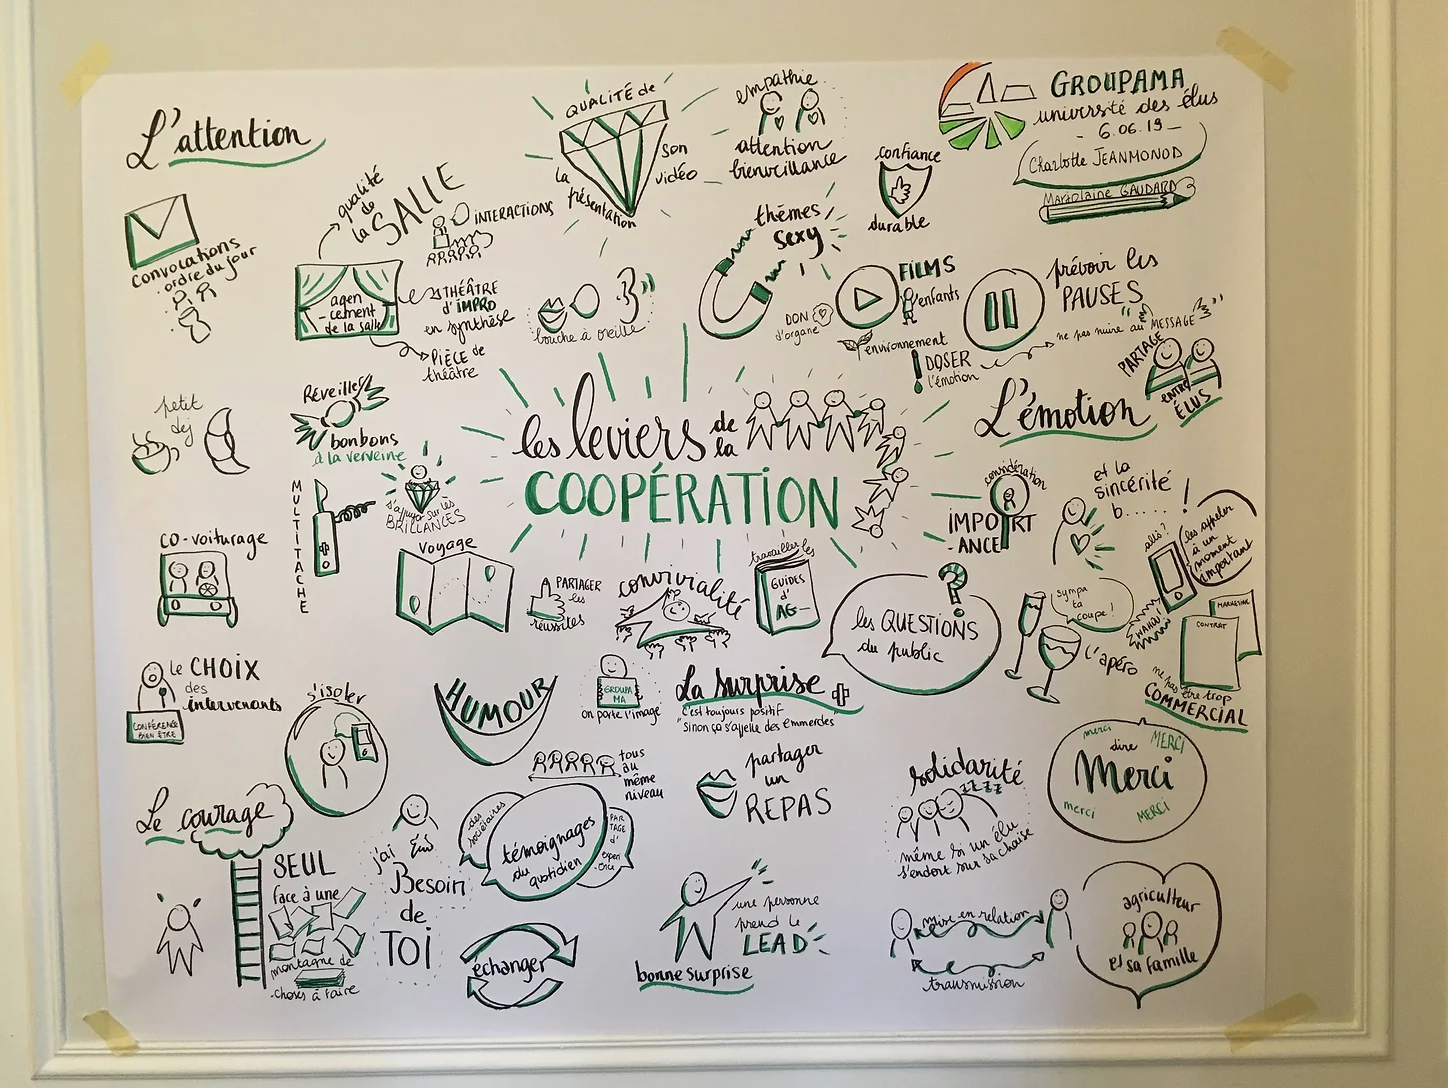 L'attention
QUALITÉ de
la
présentation
son
vidéo
empathie
attention
bienveillance
confiance
durable
GROUPAMA
université des élus
- 6.06.19 -
Charlotte JEANMONOD
Marjolaine GAUDARD
convocations
ordre du jour
qualité
de
la SALLE
INTERACTIONS
agen
-cement
de la salle
THÉÂTRE
d'IMPRO
en synthèse
PIÈCE de
théâtre
bouche à oreille
thèmes
sexy
FILMS
enfants
DON
d'organe
environnement
DOSER
l'émotion
prévoir les
PAUSES
ne pas nuire au MESSAGE
PARTAGE
ENTRE
ÉLUS
L'émotion
petit
dej
Réveiller
bonbons
à la verveine
MULTITACHE
s'appuyer sur les
BRILLANCES
les leviers de la
COOPÉRATION
considération
IMPORT
-ANCE
et la
sincérité !
b......
allo?
les appeler
à un
moment
important
co-voiturage
Voyage
PARTAGER
les
réussites
convivialité
travailler les
GUIDES
d'
AG-
les QUESTIONS
du public
sympa
ta
coupe!
l'apéro
WAHOU
MARKETING
CONTRAT
ne pas être trop
COMMERCIAL
le CHOIX
des
intervenants
CONFÉRENCE
BIEN ÊTRE
s'isoler
HUMOUR
GROUPA
MA
on porte l'image
La surprise
c'est toujours positif
"Sinon ça s'appelle des emmerdes"
tous
au
même
niveau
partager
un
REPAS
solidarité
zzzz
même si un élu
s'endort sur sa chaise
merci
MERCI
dire
Merci
merci
MERCI
Le courage
SEUL
face à une
montagne de
choses à faire
j'ai
Besoin
de
TOI
des
sociétaires
témoignages
du
quotidien
PAR
TAGE
d'
expéri
-ence
échanger
une personne
prend le
LEAD
bonne surprise
mise en relation
transmission
agriculteur
et sa famille